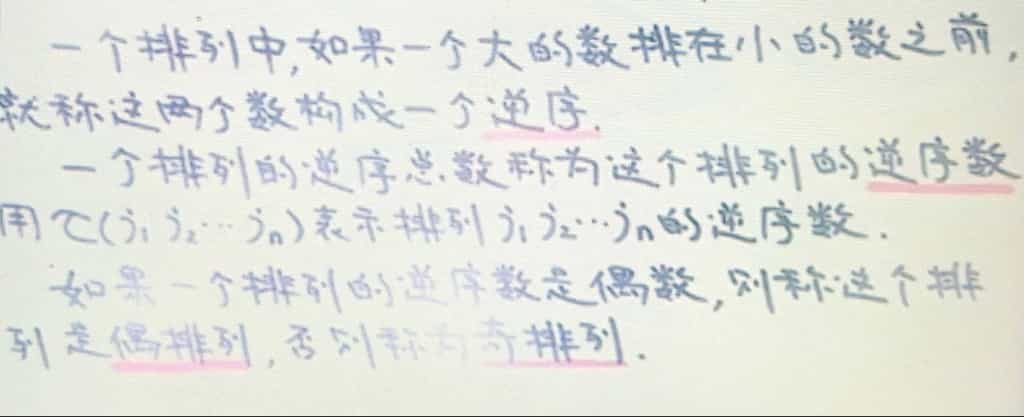 一个排列中,如果一个大的数排在小的数之前,
就称这两个数构成一个逆序.
一个排列的逆序总数称为这个排列的逆序数
用 τ(j₁ j₂…jₙ) 表示排列 j₁ j₂…jₙ 的逆序数.
如果一个排列的逆序数是偶数,则称这个排
列是偶排列,否则称为奇排列.